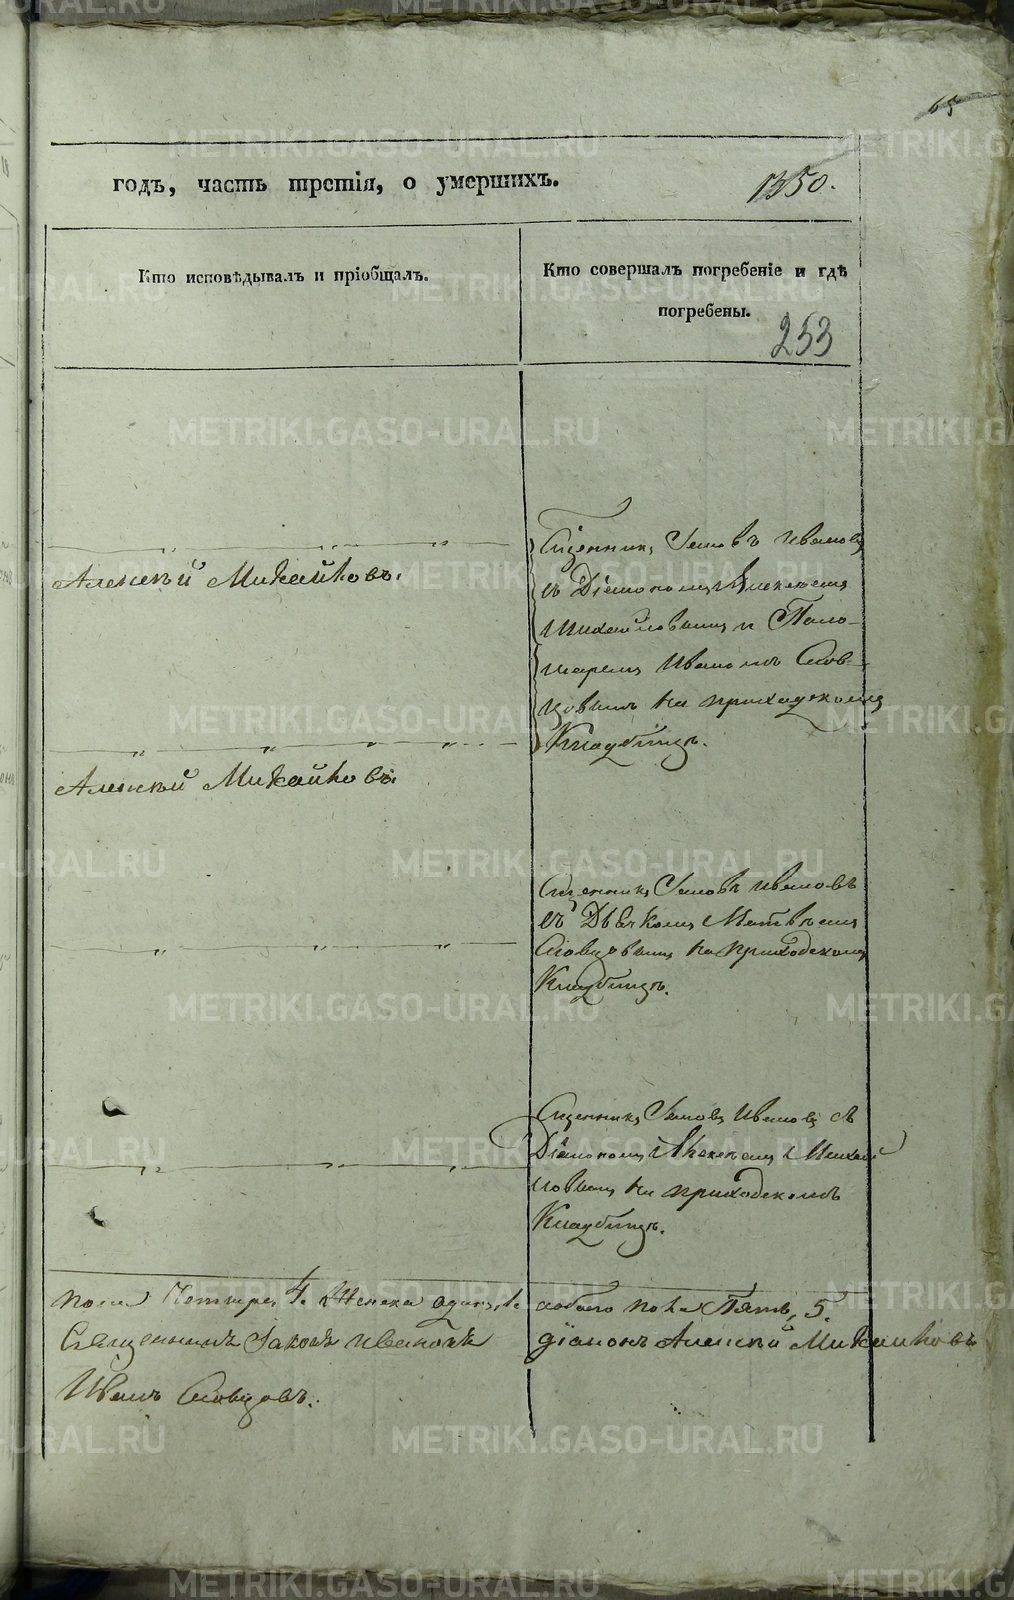 65
годъ, часть третія, о умершихъ.
1350.
Кто исповѣдывалъ и пріобщалъ.
Кто совершалъ погребеніе и гдѣ
погребены.
253
Алексѣй Михайловъ.
Алексѣй Михайловъ.
Сщенникъ Іаковъ Ивановъ
съ Діакономъ Алексѣемъ
Михайловымъ и Поно-
маремъ Иваномъ Слов-
цовымъ на приходскомъ
Кладбищѣ.
Сщенникъ Іаковъ Ивановъ
съ Дьячкомъ Матвѣемъ
Словцовымъ на Приходскомъ
Кладбищѣ.
Сщенникъ Іаковъ Ивановъ съ
Діакономъ Алексѣемъ Михай
ловымъ на приходскомъ
Кладбищѣ.
пола Четыре, 4. Женска одинъ, 1.
Священникъ Іаковъ Ивановъ
Иванъ Словцовъ.
обоего пола Пять, 5.
діаконъ Алексѣй Михайловъ
METRIKI.GASO-URAL.RU